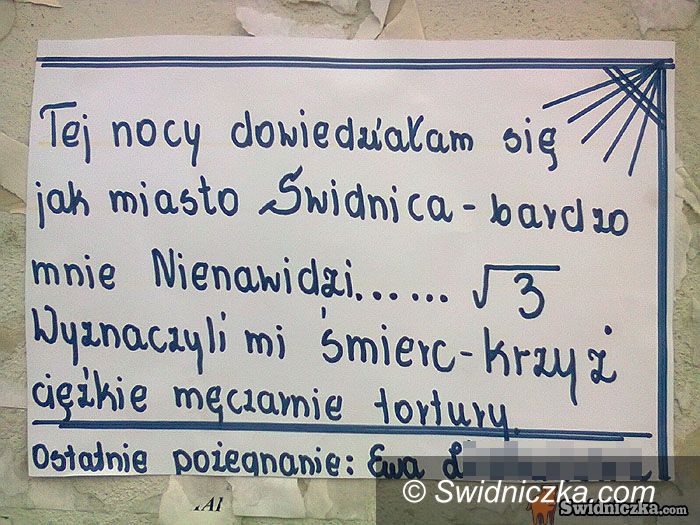 Tej nocy dowiedziałam się
jak miasto Świdnica - bardzo
mnie Nienawidzi...... √3
Wyznaczyli mi śmierc - krzyż
ciężkie męczarnie tortury.
Ostatnie pożegnanie: Ewa L
AI
© Swidniczka.com
Swidniczka.com